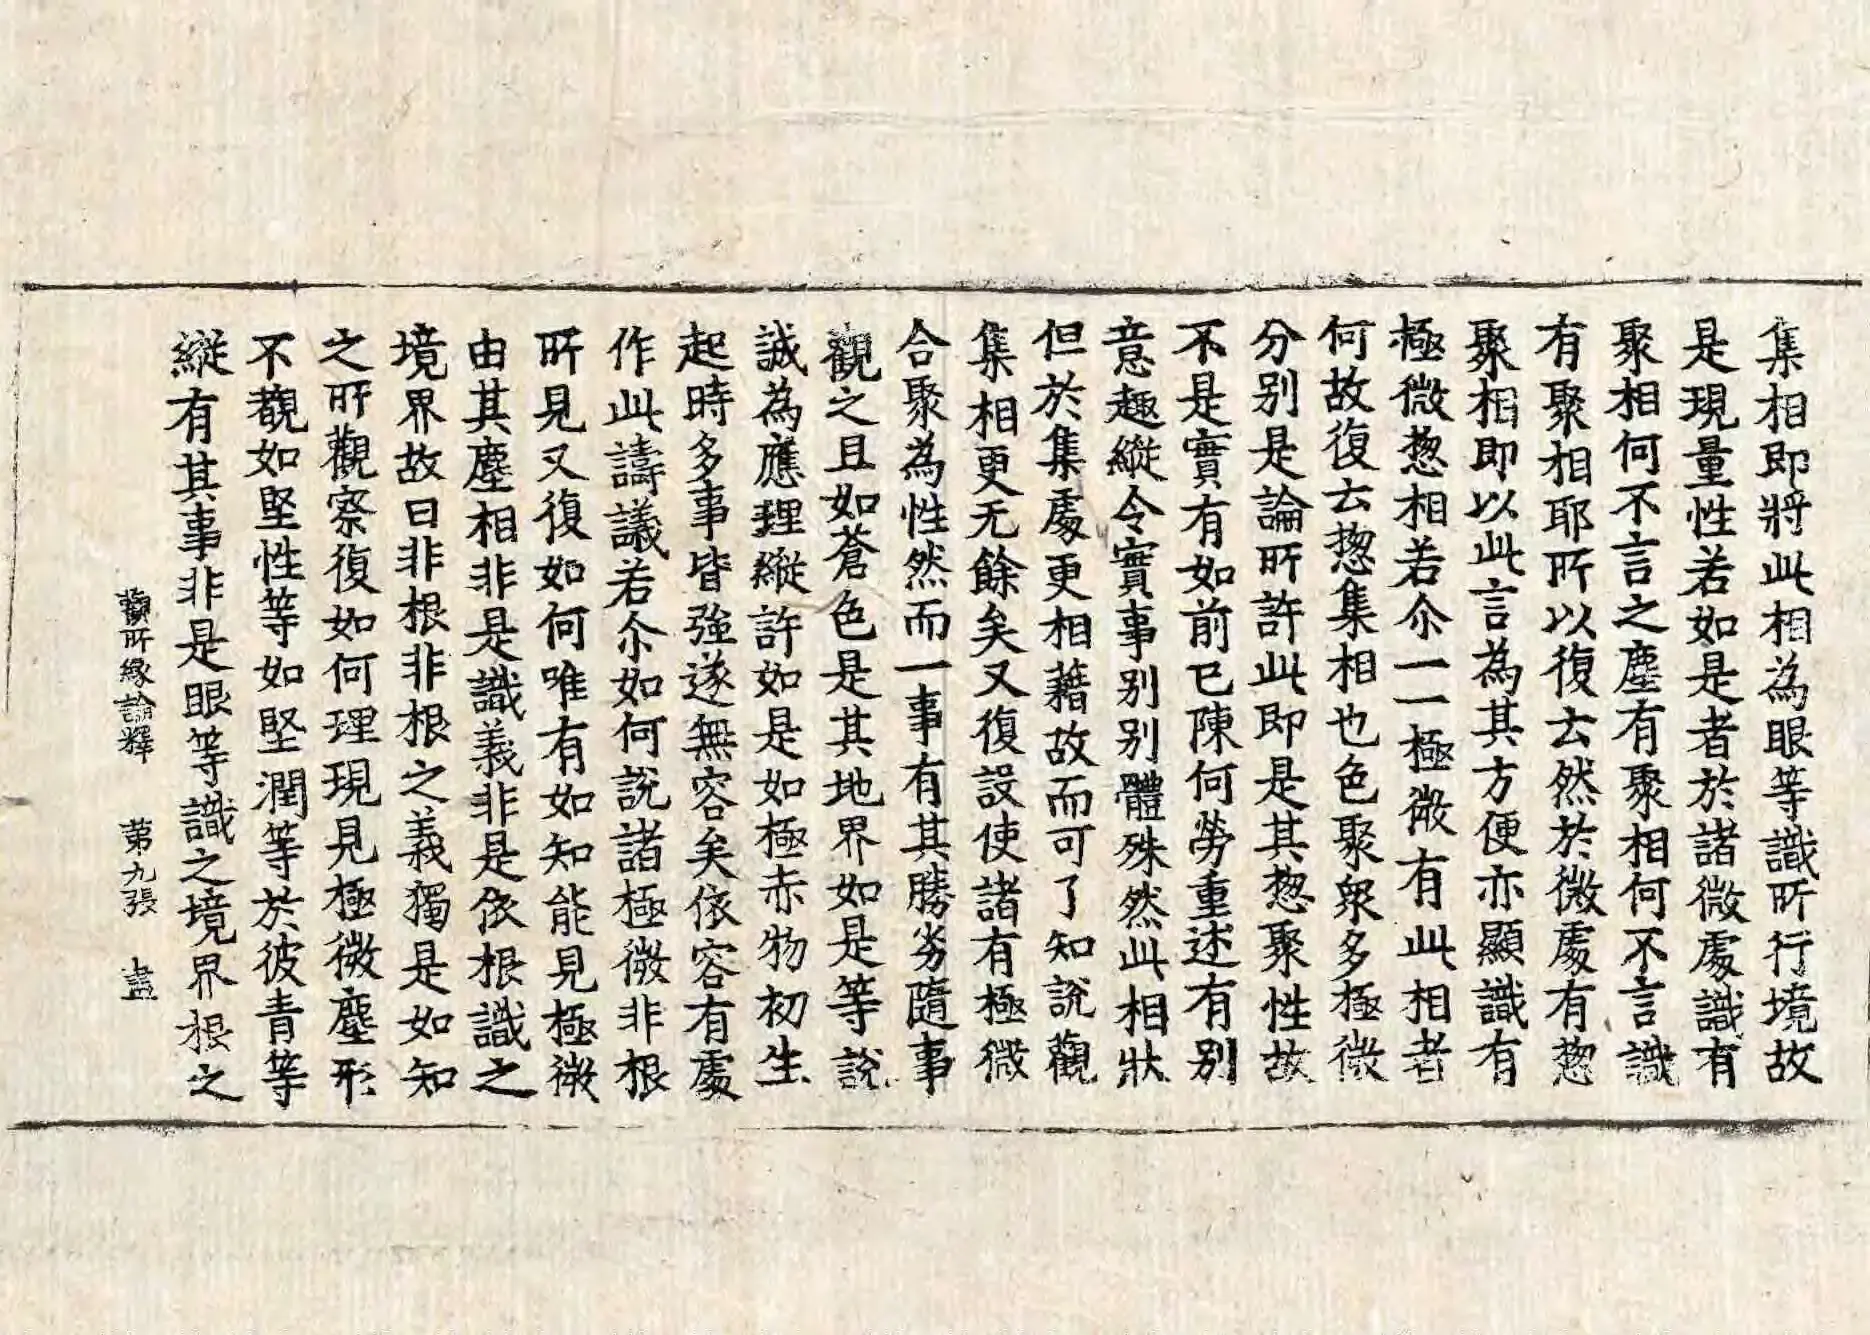 集相即將此相為眼等識所行境故
是現量性若如是者於諸微處識有
聚相何不言之塵有聚相何不言識
有聚相耶所以復去然於微處有惣
聚相即以此言為其方便亦顯識有
極微惣相若尒一一極微有此相者
何故復去惣集相也色聚衆多極微
分別是論所許此即是其惣聚性故
不是實有如前已陳何勞重述有別
意趣縱令實事別別體殊然此相狀
但於集處更相藉故而可了知說觀
集相更无餘矣又復設使諸有極微
合聚為性然而一事有其勝劣隨事
觀之且如蒼色是其地界如是等說
誠為應理縱許如是如極赤物初生
起時多事皆強遂無容矣依容有處
作此譸議若尒如何說諸極微非根
所見又復如何唯有如知能見極微
由其塵相非是識義非是依根識之
境界故曰非根非根之義獨是如知
之所觀察復如何理現見極微塵形
不觀如堅性等如堅潤等於彼青等
縱有其事非是眼等識之境界根之
觀所緣論釋 第九張 盡